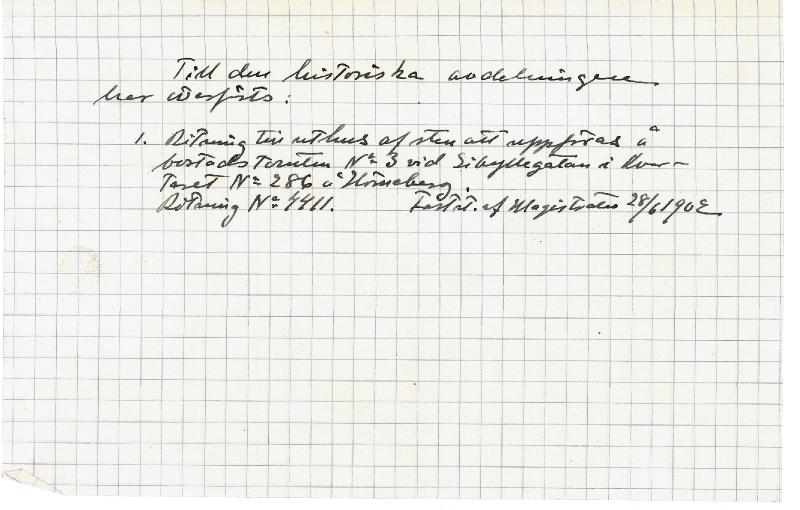 Till den historiska avdelningen
har överförts:
1. Ritning till uthus af sten att uppföras å
bostadstomten No 3 vid Sibyllegatan i Kvar-
teret No 286 å Höneberg.
Ritning No 4411. Fastst. af Magistraten 28/6 1902